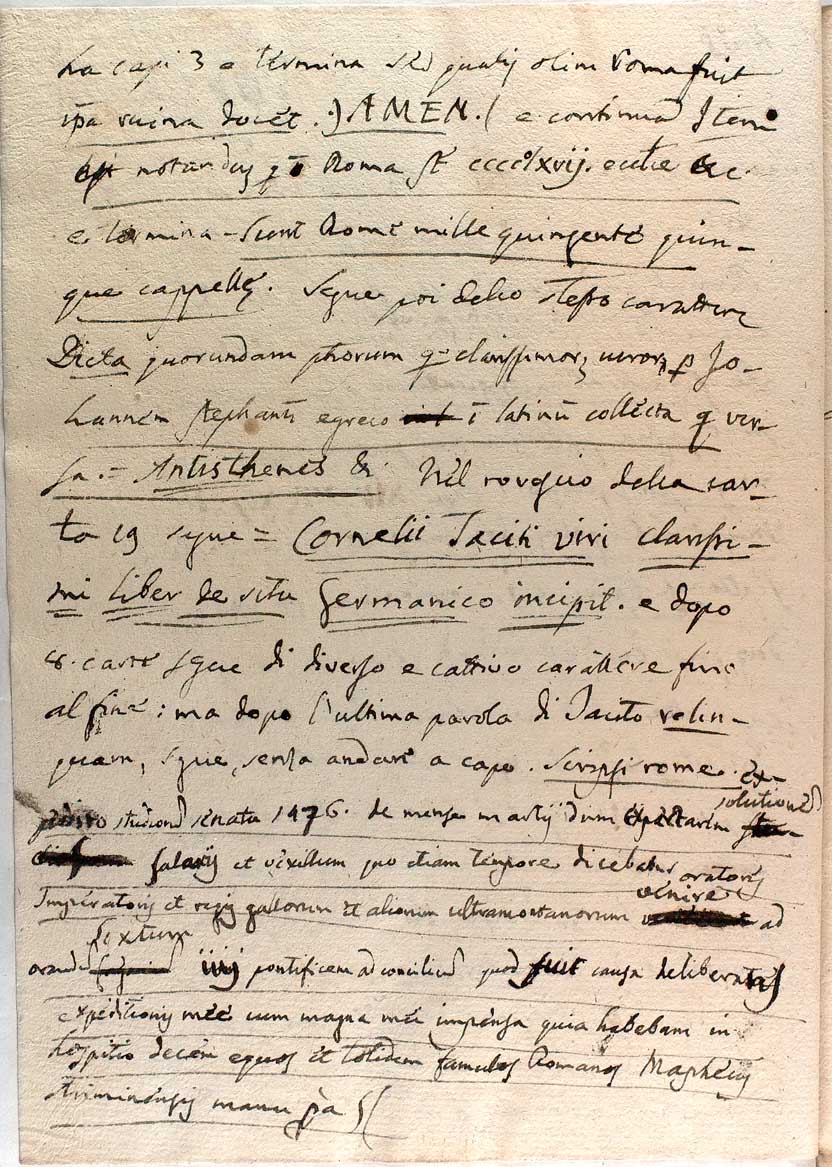 ha capi 3 e termina sed qualis olim Roma fuit
ipa ruina docet .) AMEN. ( e continua Item
est notandus Roma st cccclxvij. ecctie &c.
e termina - Sunt Rome mille quingente quin-
que cappelle. Segue poi dello stesso carattere
Dicta quorundam phorum q clarissimor uiror p Jo-
hannem Stephani egreco ī latinū collecta q ver-
sa.= Antisthenes & Nel rovescio della car-
ta 19 segue = Cornelii Taciti viri clarissi-
mi liber de situ Germanico incipit. e dopo
8. carte segue di diverso e cattivo carattere fino
al fine: ma dopo l'ultima parola di Tacito relin-
quam, segue, senza andare a capo. Scripsi rome.
studiend senatu 1476. de mense martij dum expectarem solutionem
salarij et vexillum quo etiam tempore dicebatur oratores
Imperatoris et regis gallorum et aliorum ultramontanorum venire ad
orandū sixtum iiij pontificem ad conciliū quod fuit causa
expeditionis mee cum magna mei impensa quia habebam in
hospitio decem equos et totidem famulos Romanos Mapheus
manu